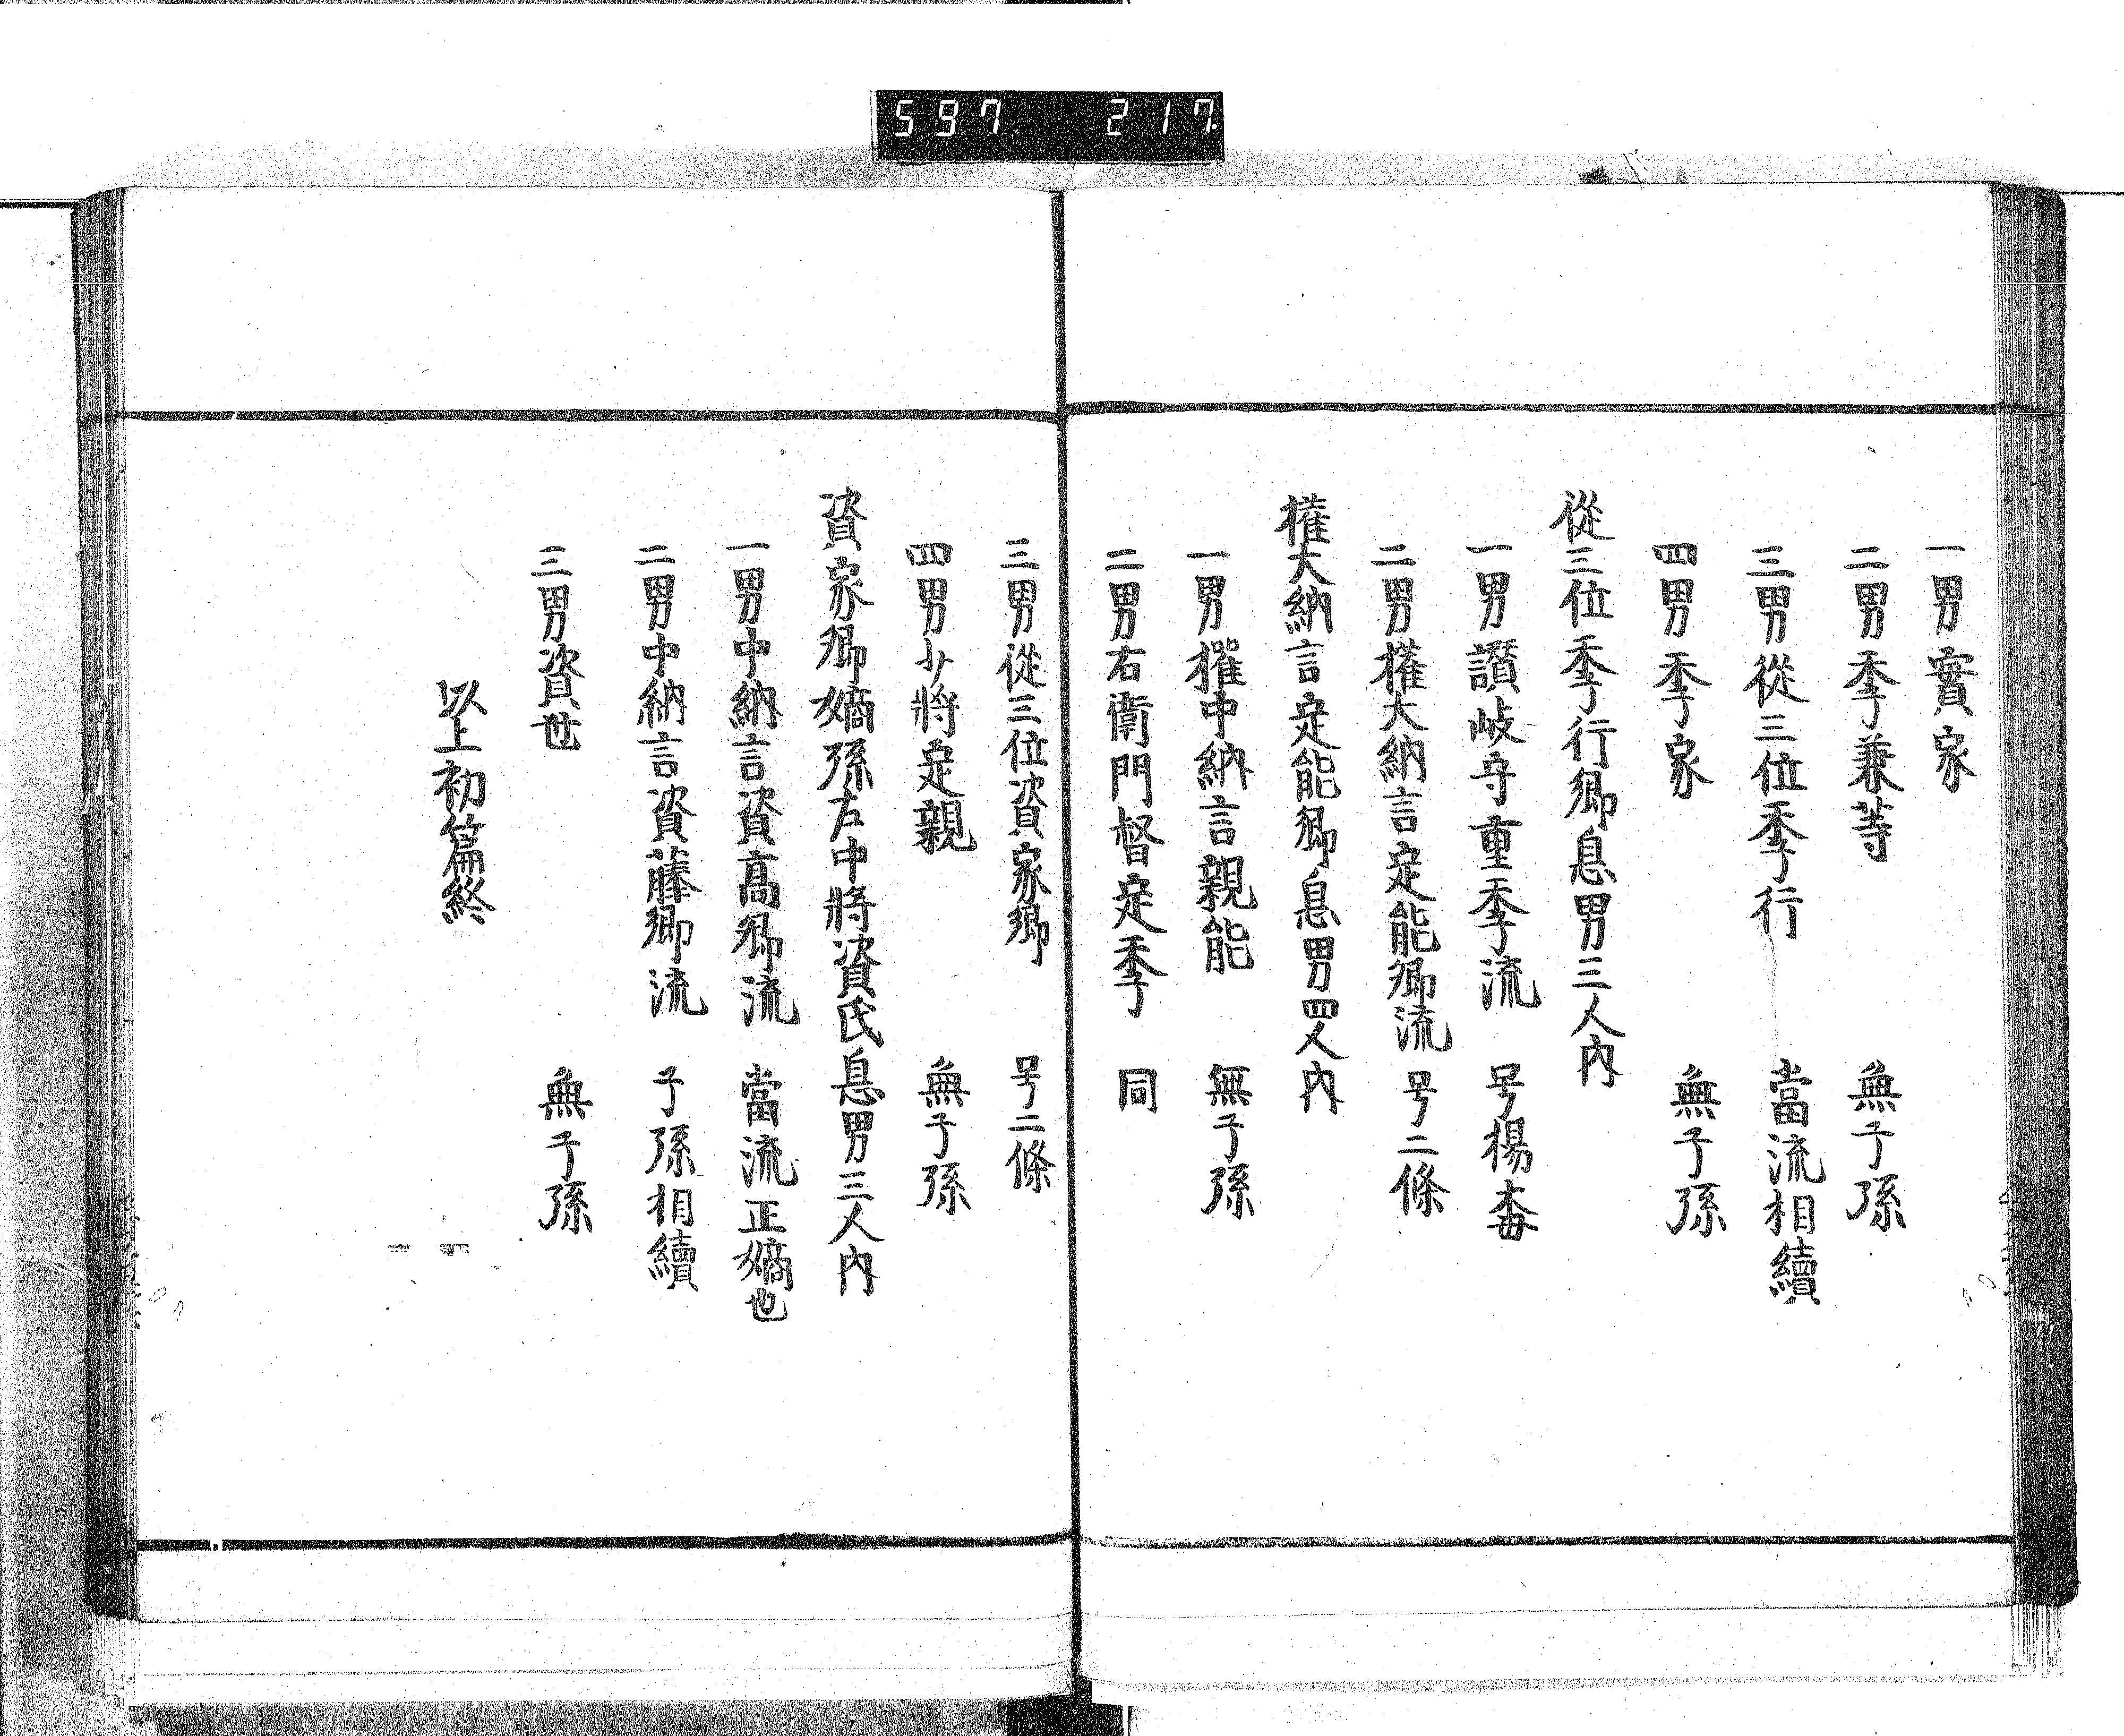 597 217
一男實家
二男季兼等 無子孫
三男從三位季行 當流相續
四男季家 無子孫
從三位季行卿息男三人內
一男讃岐守重季流 号楊梅
二男權大納言定能卿流 号二條
權大納言定能卿息男四人內
一男權中納言親能 無子孫
二男右衞門督定季 同
三男從三位資家卿 号二條
四男少將定親 無子孫
資家卿嫡孫左中將資氏息男三人內
一男中納言資高卿流 當流正嫡也
二男中納言資藤卿流 子孫相續
三男資世 無子孫
以上初篇終